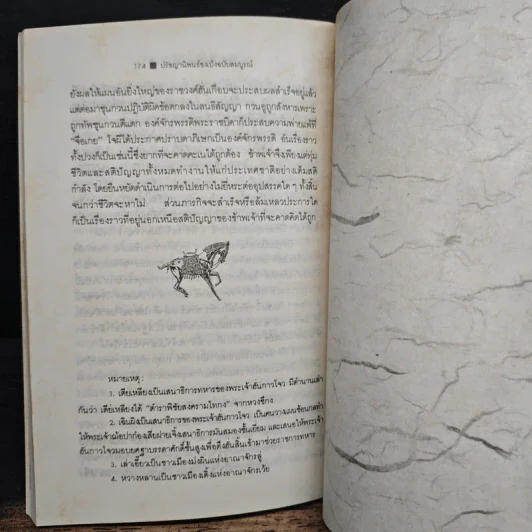 174 ■ ปรัชญานิพนธ์ขงเบ้งฉบับสมบูรณ์
ยังผลให้แผนอันยิ่งใหญ่ของราชวงศ์ฮั่นเกือบจะประสบผลสำเร็จอยู่แล้ว
แต่ต่อมาซุนกวนปฏิบัติผิดข้อตกลงในสนธิสัญญา กวนอูถูกสังหารเพราะ
ถูกทัพซุนกวนตีแตก องค์จักรพรรดิพระราชบิดาก็ประสบความพ่ายแพ้ที่
"จือเกย" โจผีได้ประกาศปราบดาภิเษกเป็นองค์จักรพรรดิ อันเรื่องราว
ทั้งปวงก็เป็นเช่นนี้ซึ่งยากที่จะคาดคะเนได้ถูกต้อง ข้าพเจ้าจึงเพียงแต่ทุ่ม
ชีวิตและสติปัญญาทั้งหมดทำงานให้แก่ประเทศชาติอย่างเต็มสติ
กำลัง โดยยืนหยัดดำเนินการต่อไปอย่างไม่ยี่หระต่ออุปสรรคใด ๆ ทั้งสิ้น
จนกว่าชีวิตจะหาไม่ ส่วนภารกิจจะสำเร็จหรือล้มเหลวประการใด
ก็เป็นเรื่องราวที่อยู่นอกเหนือสติปัญญาของข้าพเจ้าที่จะคาดคิดได้ถูก
หมายเหตุ :
1. เตียเหลียงเป็นเสนาธิการทหารของพระเจ้าฮั่นกาวโจว มีตำนานเล่า
กันว่า เตียเหลียงได้ "ตำราพิชัยสงครามไทกง" จากหวงซึกง
2. เฉินผิงเป็นเสนาธิการของพระเจ้าฮั่นกาวโจว เป็นคนวางแผนซ้อนกลทำ
ให้พระเจ้าฌ้อปาก๋องเสียฝ่ายเจิ้งเสนาธิการมันสมองชั้นเยี่ยม และเสนอให้พระเจ้า
ฮั่นกาวโจวมอบยศฐาบรรดาศักดิ์ชั้นสูงเพื่อดึงฮั่นสิ้นเข้ามาช่วยราชการทหาร
3. เล่าเอี้ยวเป็นชาวเมืองม่งผินแห่งอาณาจักรอู๋
4. หวางหลานเป็นชาวเมืองเติ้งแห่งอาณาจักรเว้ย